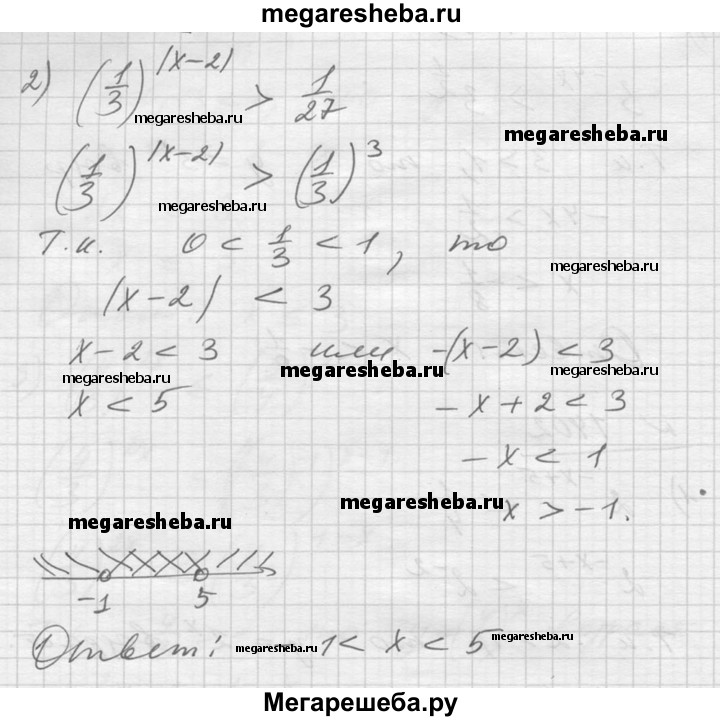 megaresheba.ru
2) (1/3)^|x-2| > 1/27
megaresheba.ru
megaresheba.ru
(1/3)^|x-2| > (1/3)^3
megaresheba.ru
Т.к. 0 < 1/3 < 1, то
megaresheba.ru
|x-2| < 3
x-2 < 3 или -(x-2) < 3
megaresheba.ru megaresheba.ru megaresheba.ru
x < 5 -x+2 < 3
-x < 1
megaresheba.ru x > -1.
megaresheba.ru
-1 5
Ответ: -1 < x < 5
megaresheba.ru megaresheba.ru
Мегарешеба.ру